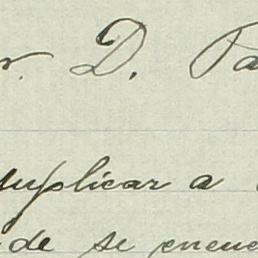 r. D. Pa
suplicar a
de se encue